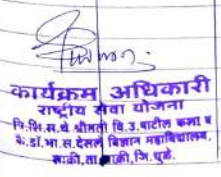 कार्यक्रम अधिकारी
राष्ट्रीय सेवा योजना
नि.शि.स.चे श्रीमती वि.उ.पाटील कला व
कै.डॉ.भा.स.देसले विज्ञान महाविद्यालय,
साक्री,ता.साक्री,जि.धुळे.